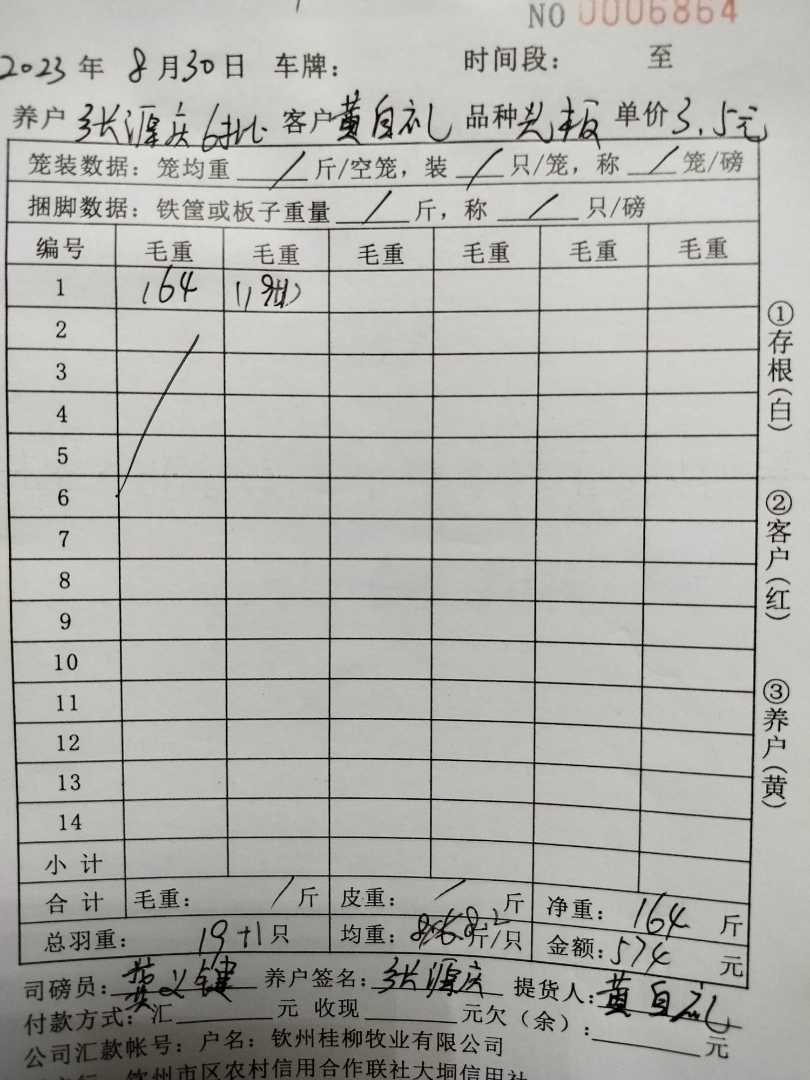 NO 0006864
2023年 8月30日 车牌： 时间段： 至
养户 张源庆6批 客户 黄自礼 品种 光板 单价 3.5元
笼装数据：笼均重 / 斤/空笼，装 / 只/笼，称 / 笼/磅
捆脚数据：铁筐或板子重量 / 斤，称 / 只/磅
编号 毛重 毛重 毛重 毛重 毛重 毛重
1 164
2
3
4
5
6
7
8
9
10
11
12
13
14
小计
合计 毛重： / 斤 皮重： / 斤 净重：164 斤
总羽重： 19+1只 均重： 8.2 斤/只 金额：574 元
司磅员：黄义键 养户签名：张源庆 提货人：黄自礼
付款方式：汇 元 收现 元欠（余）： 元
公司汇款帐号：户名：钦州桂柳牧业有限公司
钦州市区农村信用合作联社大垌信用社
①存根（白）
②客户（红）
③养户（黄）